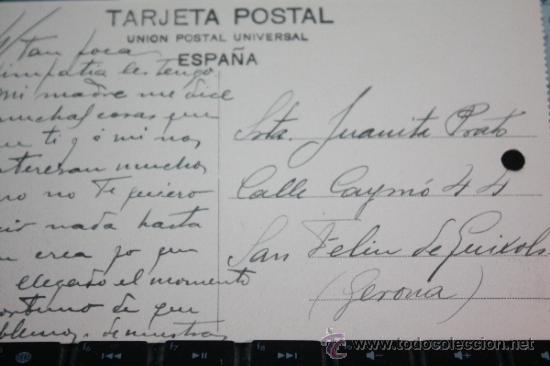 TARJETA POSTAL
UNION POSTAL UNIVERSAL
ESPAÑA
tan poca
simpatia les tengo
mi madre me dice
muchas cosas que
a ti y á mi nos
interesan mucho
no Te quiero
nada hasta
crea yo que
llegado el momento
de que
de nuestras
Srta. Juanita Prats
Calle Caymó 44
San Feliu de Guixols
(Gerona)
todocoleccion
www.todocoleccion.net